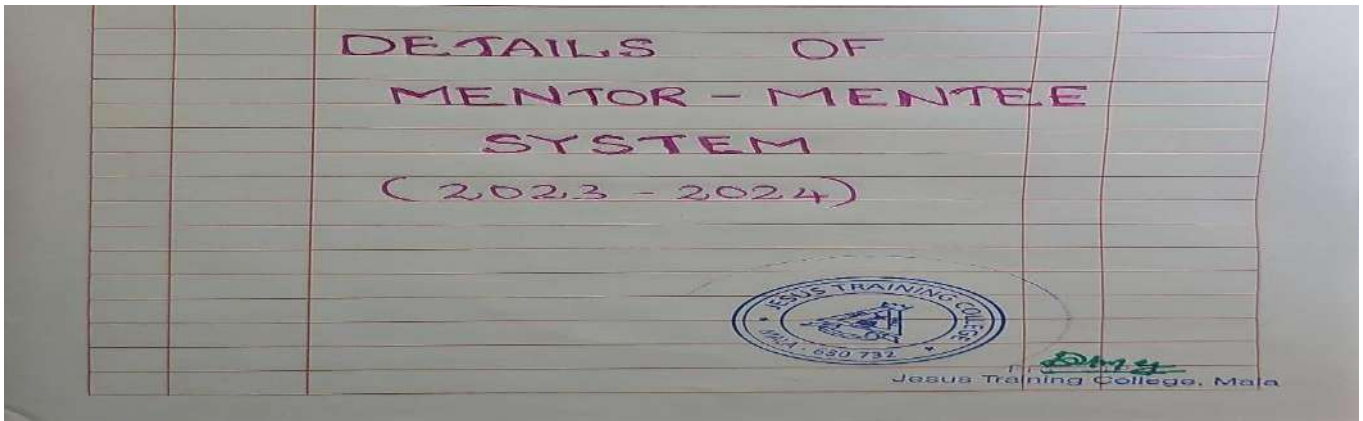 DETAILS OF
MENTOR - MENTEE
SYSTEM
(2023 - 2024)
JESUS TRAINING COLLEGE
MALA - 680 732
Jesus Training College, Mala